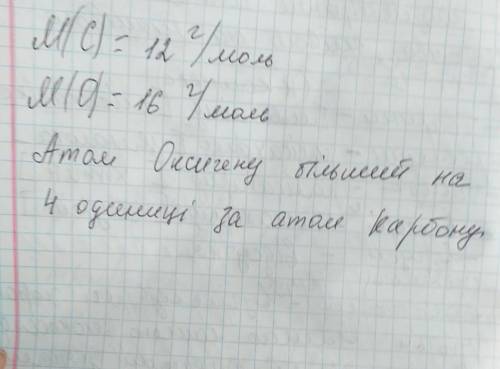 M(C) = 12 г/моль
M(O) = 16 г/моль
Атом Оксигену більший на
4 одиниці за атом Карбону.